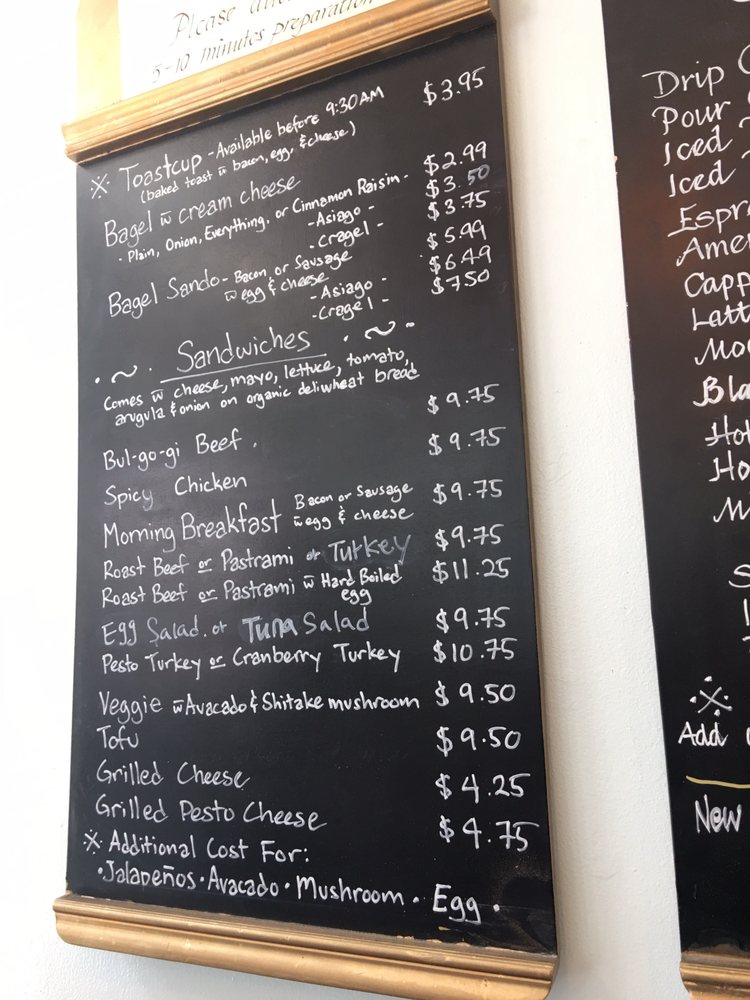 Please
5-10 minutes preparation
※ Toastcup - Available before 9:30AM $3.95
(baked toast w̄ bacon, egg, & cheese)
Bagel w̄ cream cheese $2.99
· Plain, Onion, Everything, or Cinnamon Raisin - $3.50
- Asiago - $3.75
- Cragel -
Bagel Sando - Bacon, or Sausage $5.99
w̄ egg & cheese $6.49
- Asiago - $7.50
- Cragel -
· ~ · Sandwiches · ~ ·
Comes w̄ cheese, mayo, lettuce, tomato,
arugula & onion on organic deliwheat bread
Bul-go-gi Beef . $9.75
Spicy Chicken $9.75
Morning Breakfast Bacon or Sausage $9.75
w̄ egg & cheese
Roast Beef or Pastrami or Turkey $9.75
Roast Beef or Pastrami w̄ Hard Boiled $11.25
egg
Egg Salad. or Tuna Salad $9.75
Pesto Turkey or Cranberry Turkey $10.75
Veggie w̄ Avacado & Shitake mushroom $9.50
Tofu $9.50
Grilled Cheese $4.25
Grilled Pesto Cheese $4.75
※ Additional Cost For:
· Jalapeños · Avacado · Mushroom · Egg ·
Drip
Pour
Iced
Iced
※
Add
New